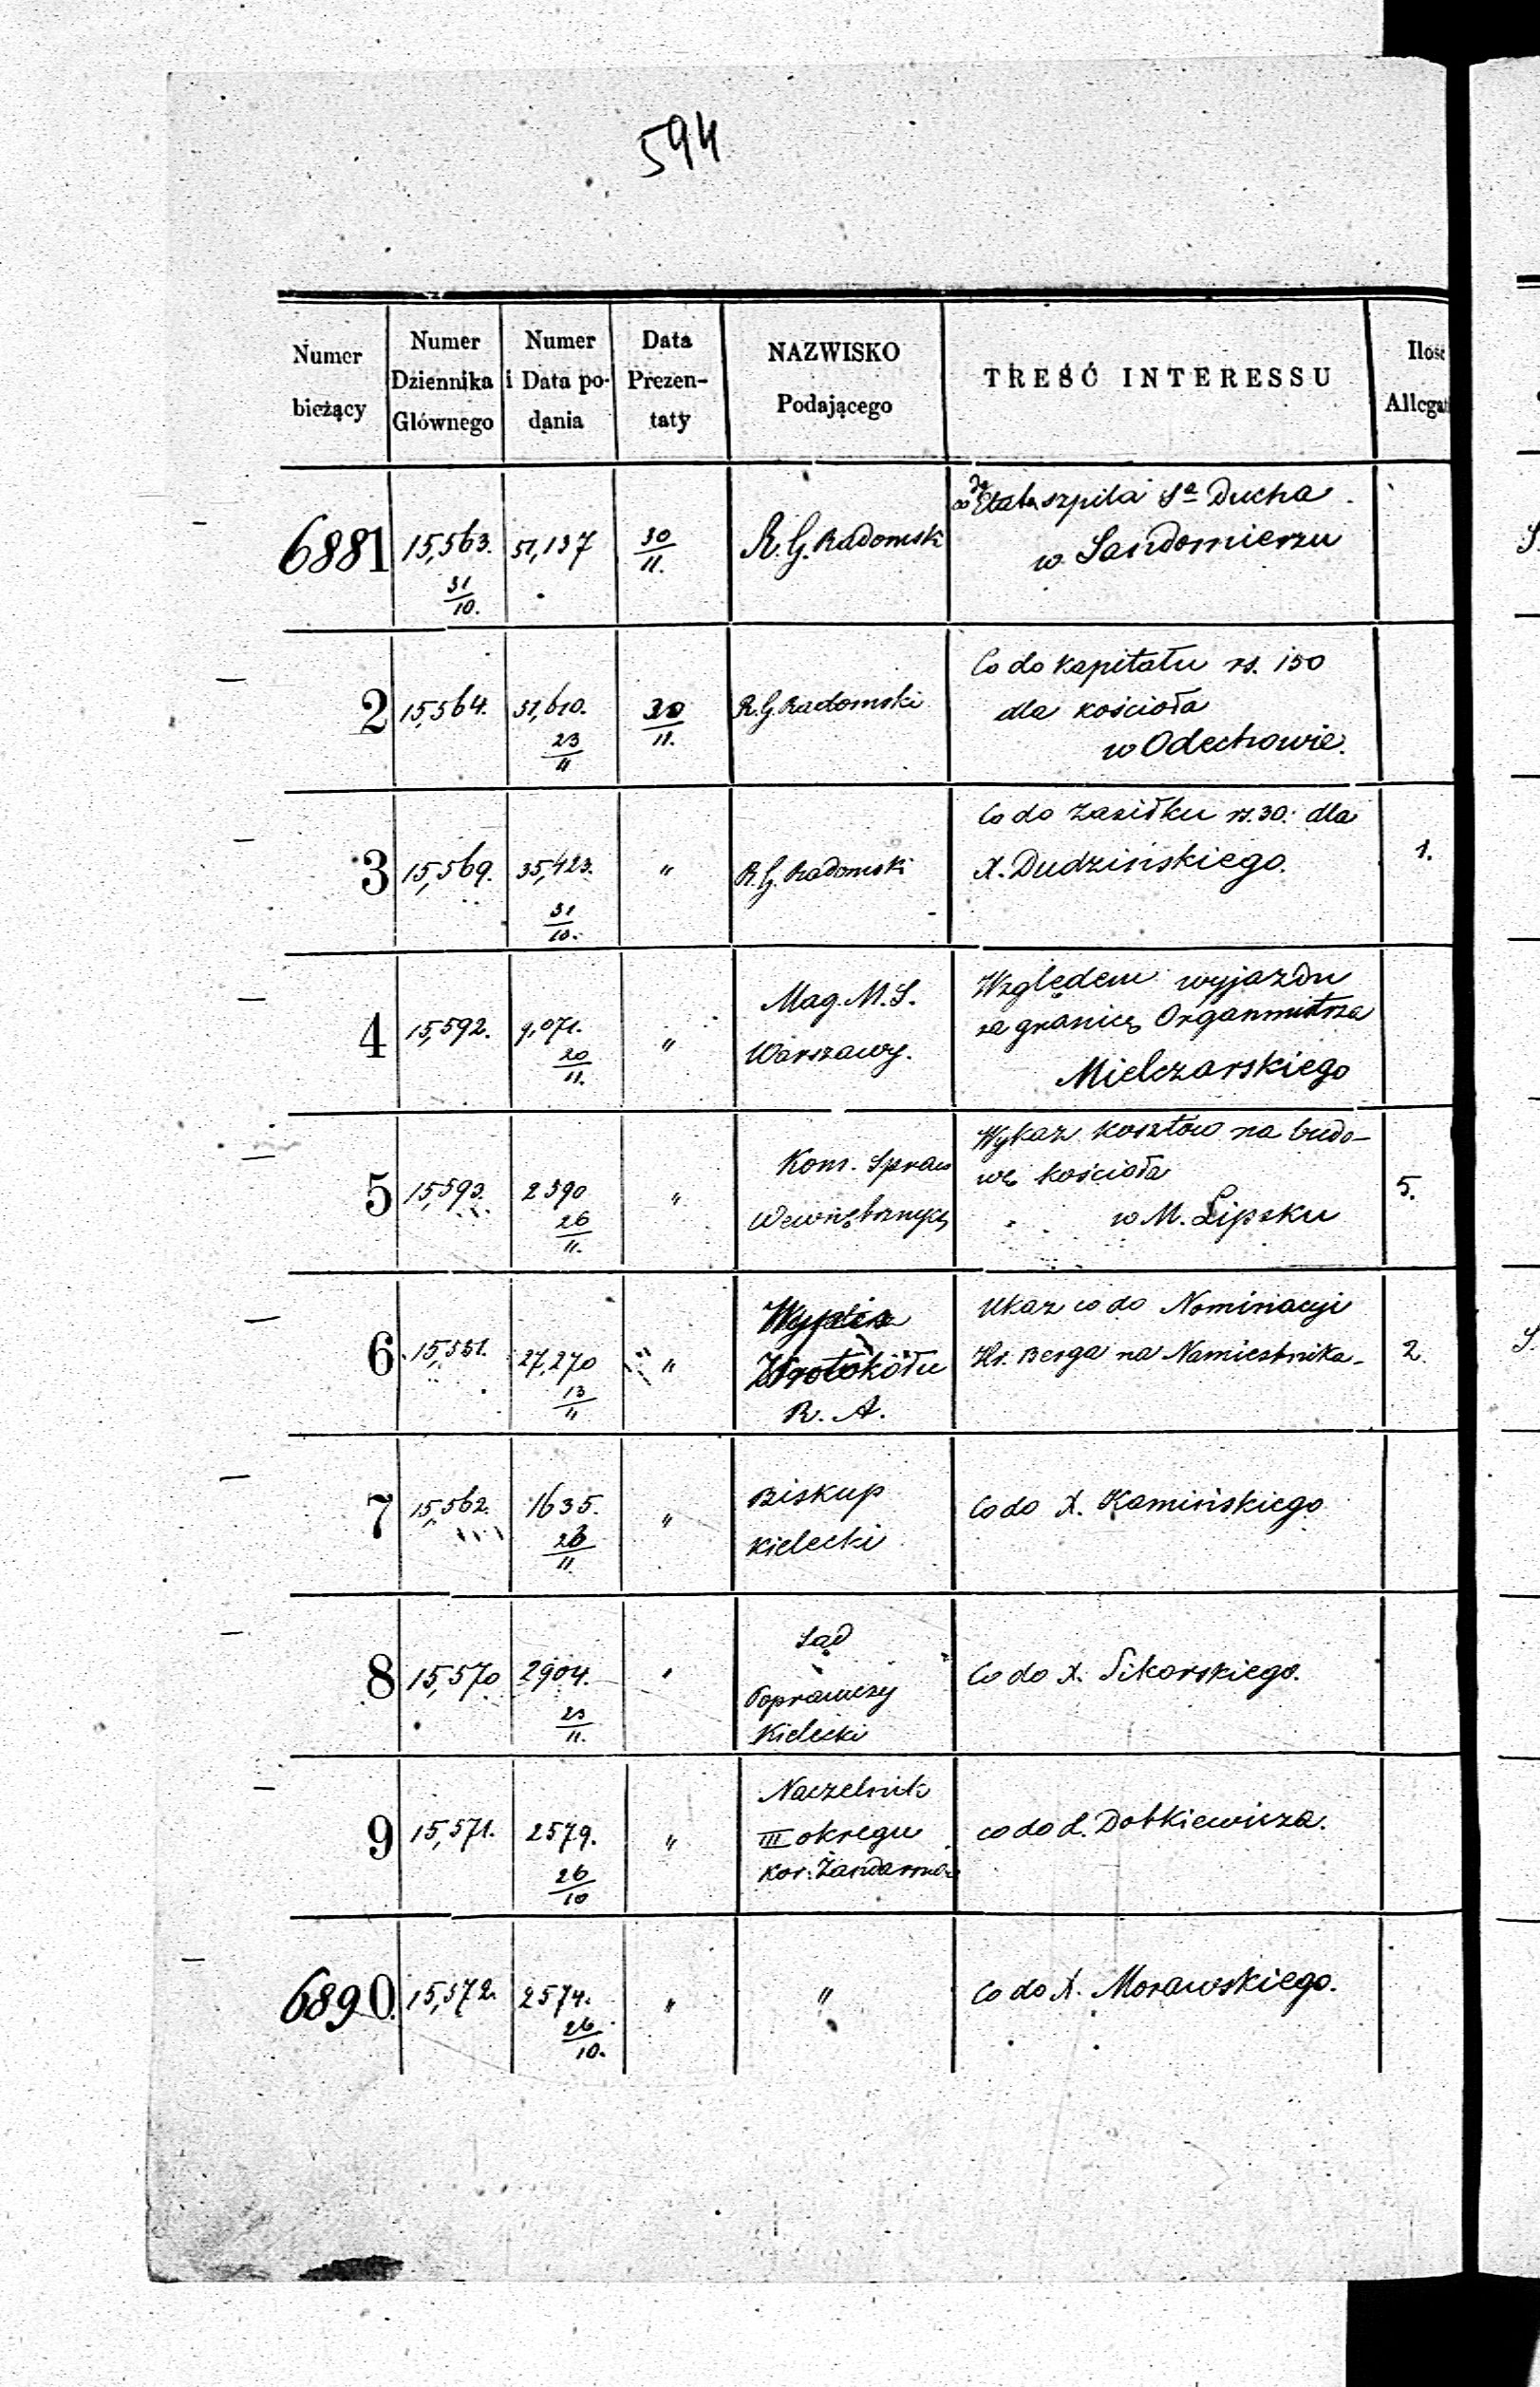 594
Numer bieżący | Numer Dziennika Głównego | Numer i Data podania | Data Prezentaty | NAZWISKO Podającego | TREŚĆ INTERESSU | Ilość
6881 15,563. 31/10. 51,137 30/11. R. G. Radomski co do Etatu szpita Sᵃ Ducha
w Sandomierzu
2 15,564. 51,610. 23/11 30/11. R. G. Radomski Co do kapitału rs. 150
dla kościoła
w Odechowie.
3 15,569. 35,423. 31/10. " R. G. Radomski Co do zasiłku rs. 30. dla
X. Dudzińskiego. 1.
4 15,592. 9,071. 20/11. " Mag. M. S. Warszawy. Względem wyjazdu
za granicę Organmistrza
Mielczarskiego
5 15,593. 2590 26/11. " Kom. Spraw Wewnętrznych Wykaz kosztów na budo-
wę kościoła
w M. Lipsku 5.
6 15,551. 27,270 13/11 " Wypis z Protokółu R. A. Ukaz co do Nominacyi
Hr. Berga na Namiestnika 2.
7 15,562. 1635. 26/11 " Biskup Kielecki Co do X. Kamińskiego
8 15,570 2904. 23/11. " Sąd Poprawczy Kielecki Co do X. Sikorskiego.
9 15,571. 2579. 26/10 " Naczelnik III okregu Kor. Żandarmów co do X. Dobkiewicza.
6890. 15,572. 2574. 26/10. " " Co do X. Morawskiego.